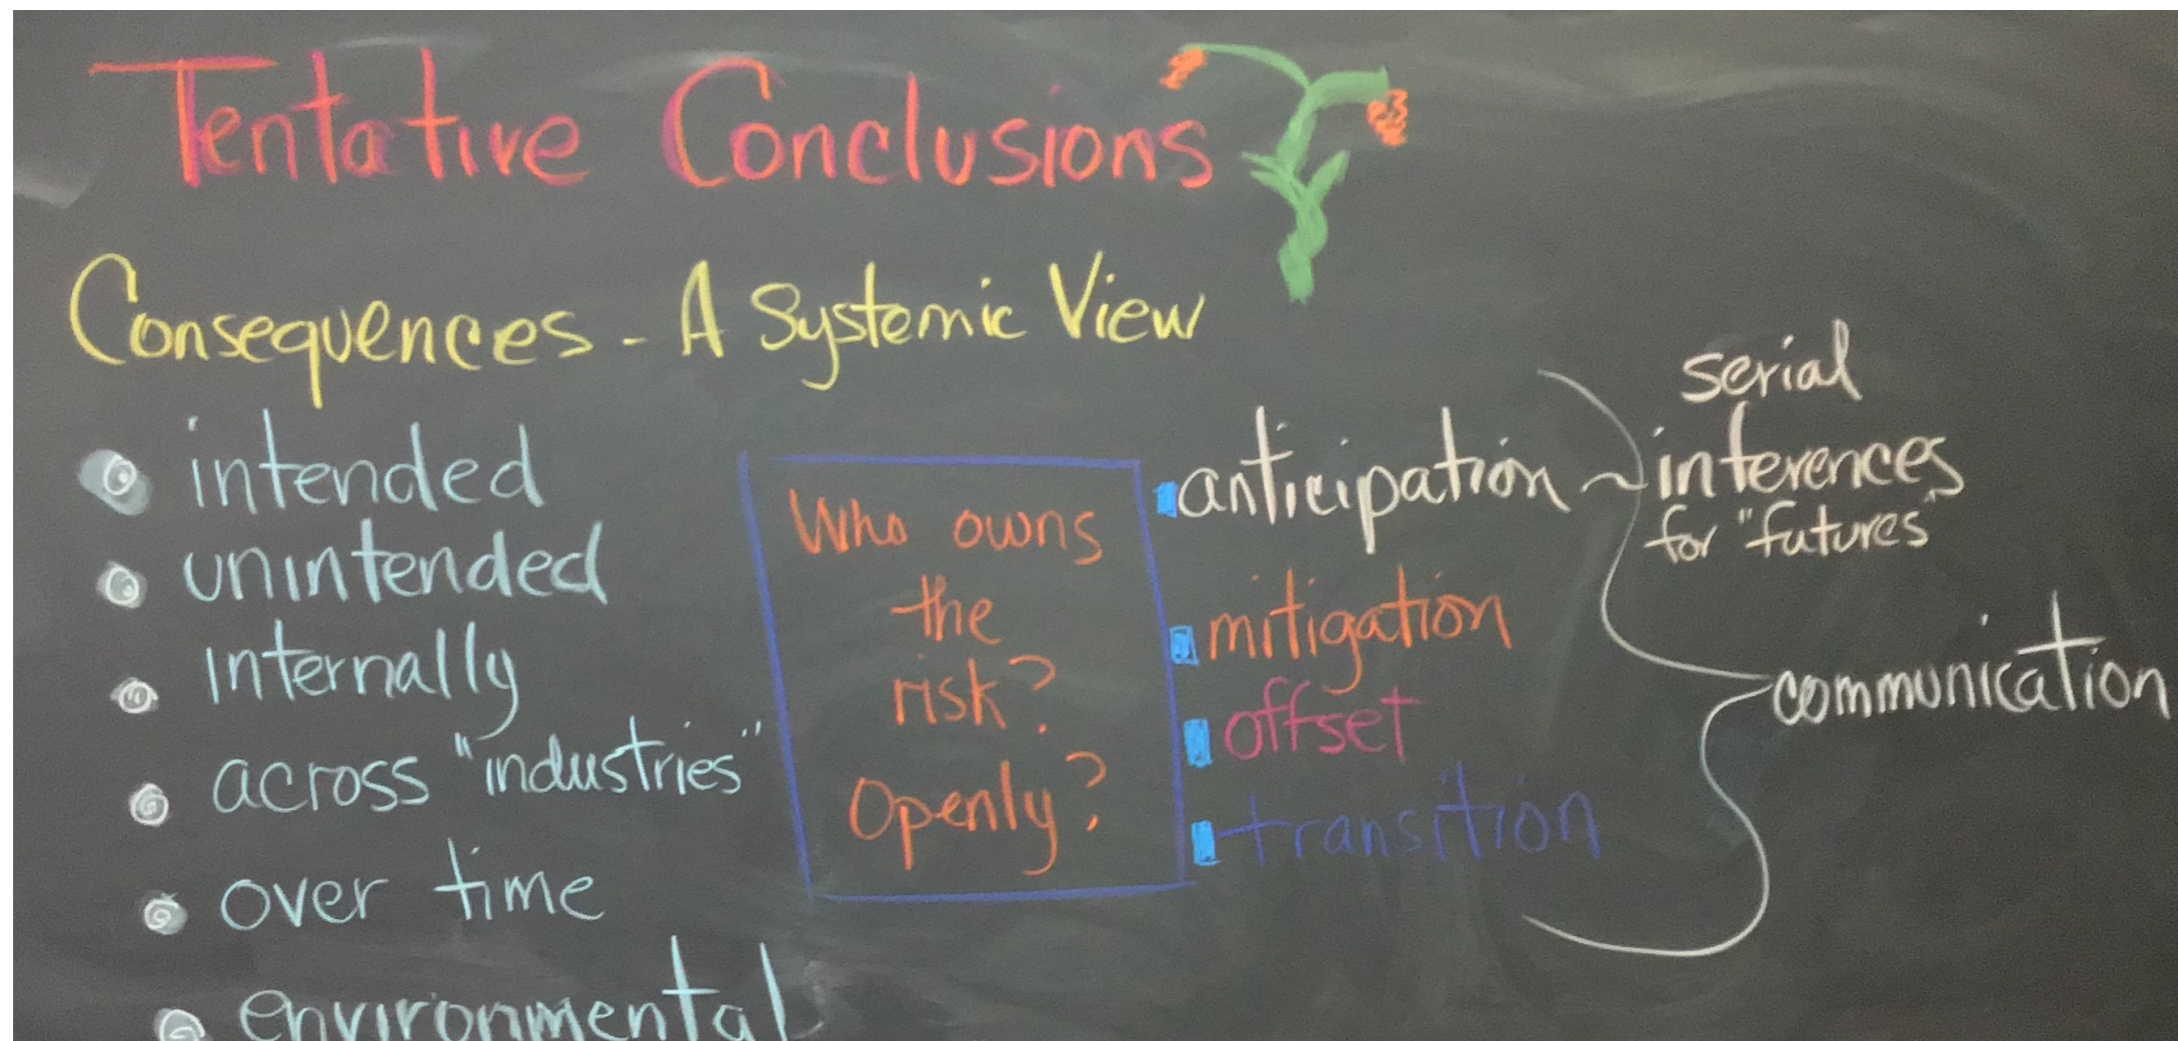 Tentative Conclusions
Consequences - A Systemic View
• intended
• unintended
• internally
• across "industries"
• over time
• environmental
Who owns
the
risk?
Openly?
anticipation ~
mitigation
offset
transition
serial
inferences
for "futures"
communication